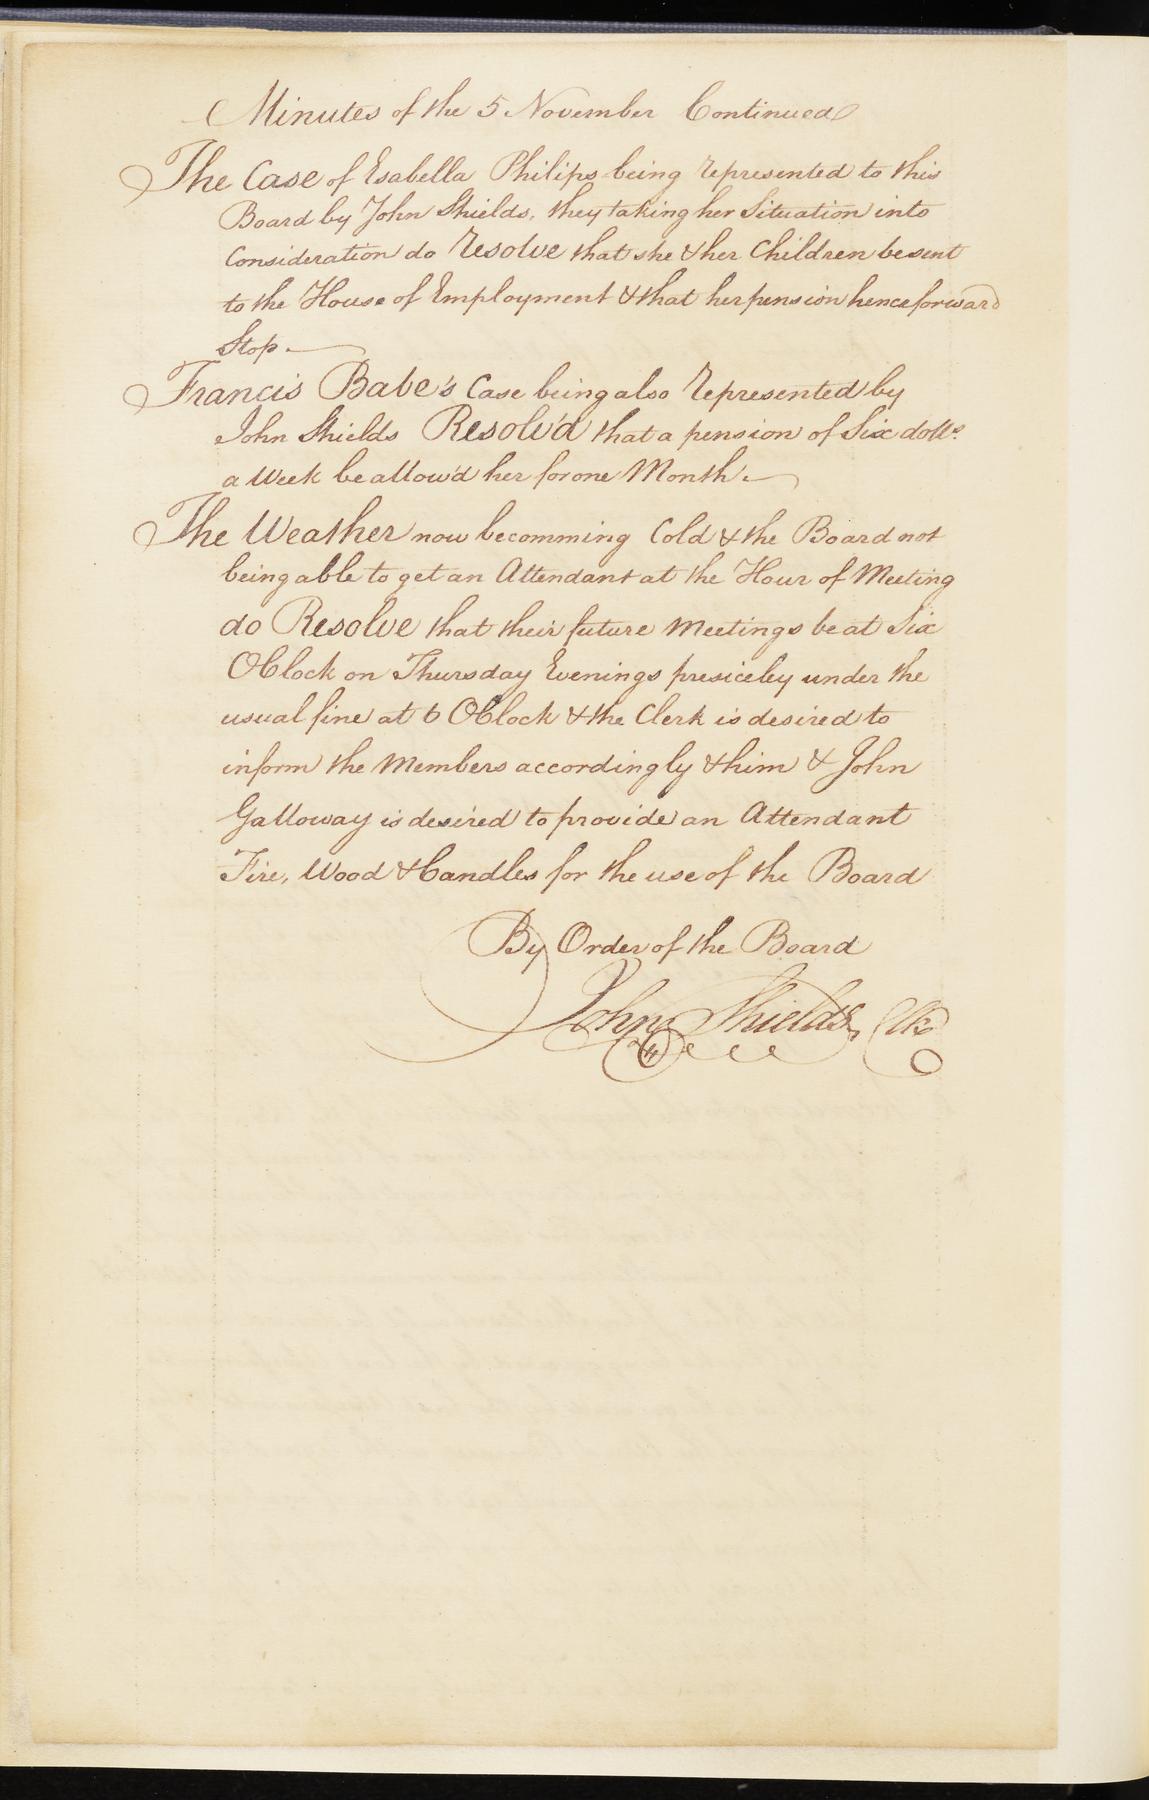 Minutes of the 5 November Continued
The Case of Esabella Philips being represented to this
Board by John Shields, they taking her Situation into
Consideration do Resolve that she & her Children be sent
to the House of Employment & that her pension henceforward
Stop.
Francis Babe's Case being also represented by
John Shields Resolv'd that a pension of Six dolls
a Week be allow'd her for one Month.
The Weather now becomming Cold & the Board not
being able to get an Attendant at the Hour of Meeting
do Resolve that their future Meetings be at Six
OClock on Thursday Evenings presiceley under the
usual fine at 6 OClock & the Clerk is desired to
inform the Members accordingly & him & John
Galloway is desired to provide an Attendant
Fire, Wood & Candles for the use of the Board
By Order of the Board
John Shields, Clk